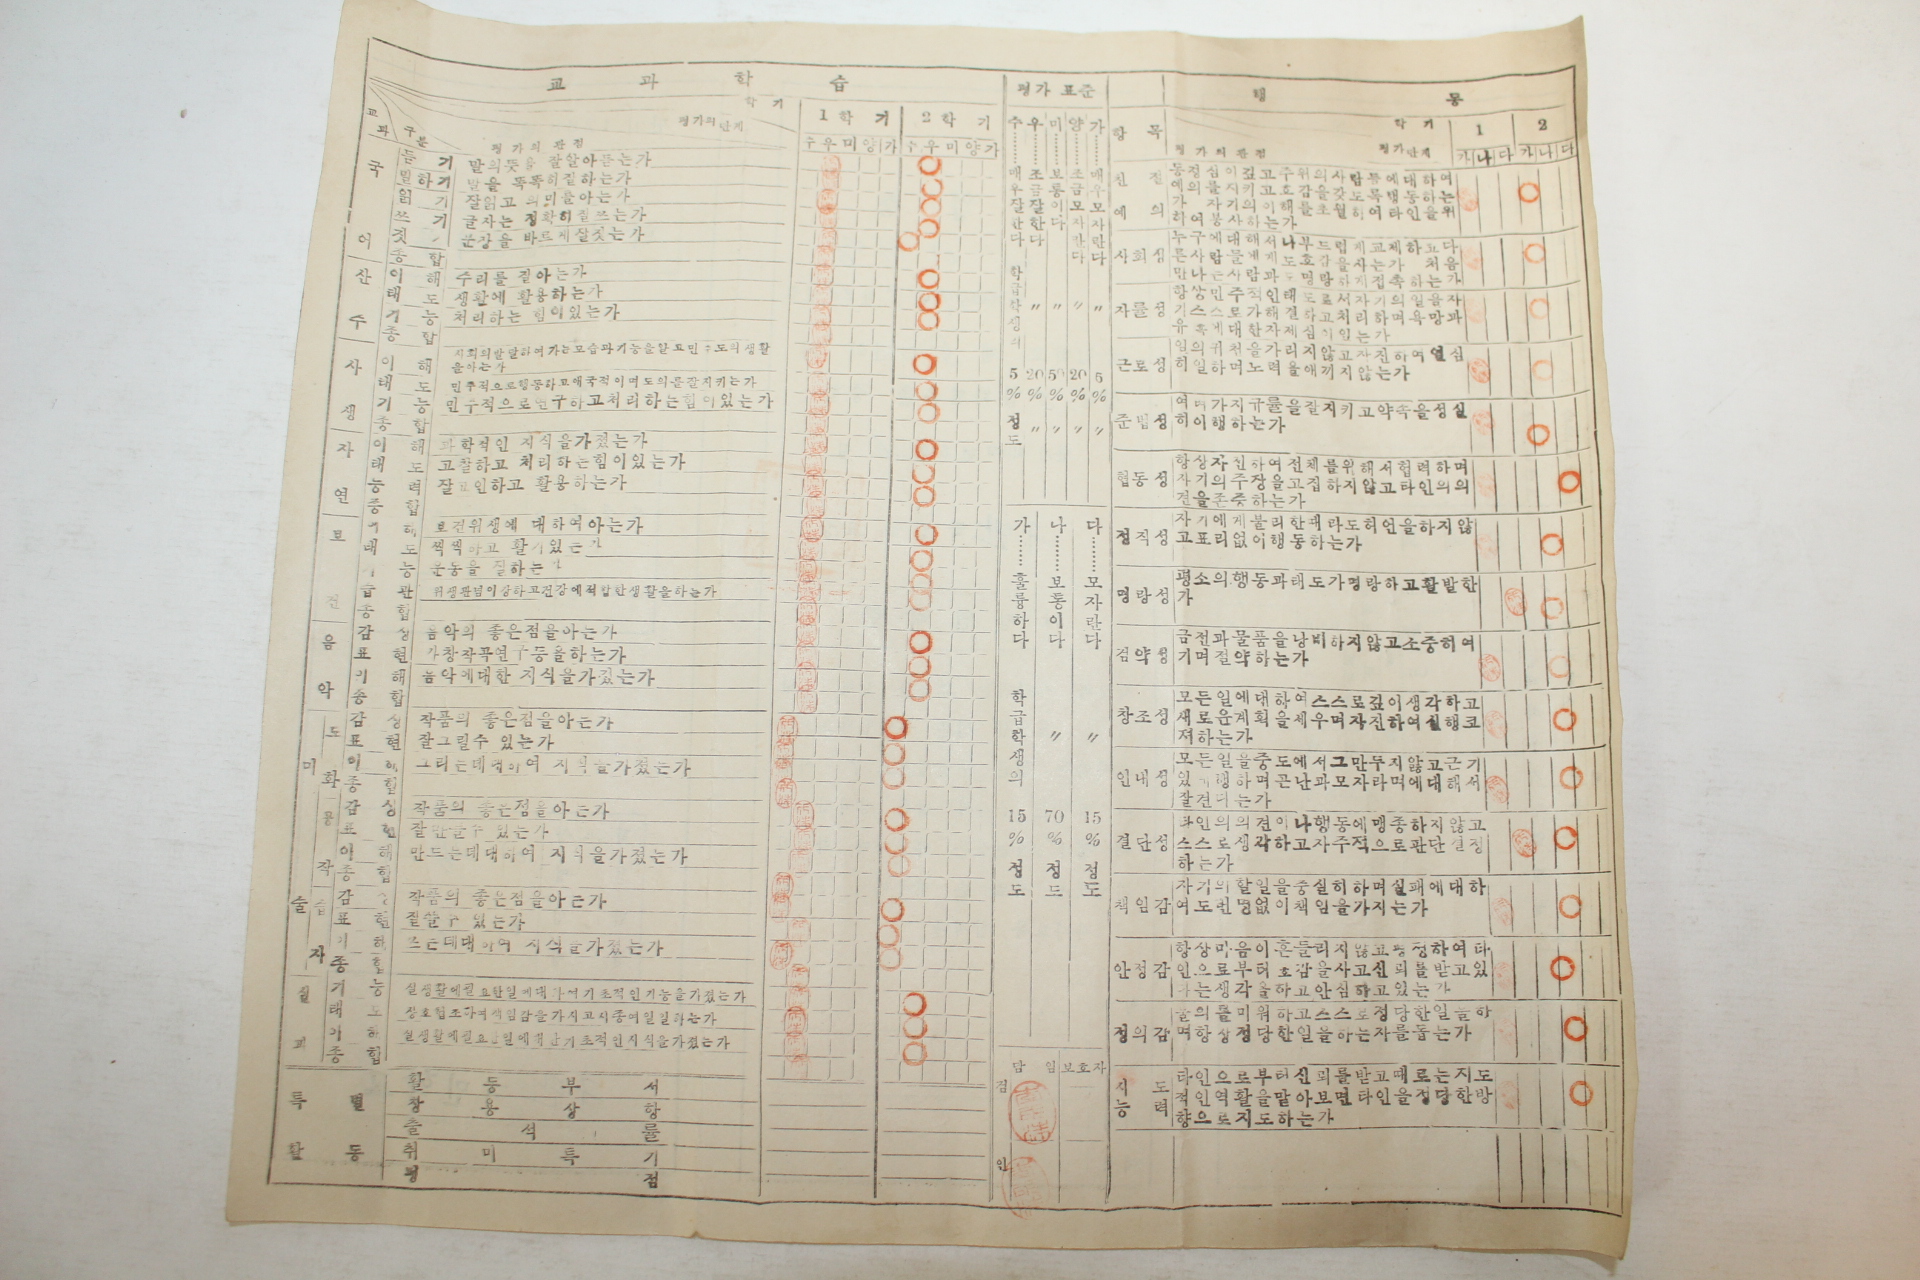 교 과 학 습
학 기
평가의 단계
1 학 기
2 학 기
수 우 미 양 가
수 우 미 양 가
교과
구분
평가의 관점
국어
듣 기 말의뜻을 잘알아듣는가
말하기 말을 똑똑히잘하는가
읽 기 잘읽고 의미를아는가
쓰 기 글자는 정확히잘쓰는가
짓 기 문장을 바르게잘짓는가
종 합
산수
이 해 수리를 잘아는가
태 도 생활에 활용하는가
기 능 처리하는 힘이있는가
종 합
사생
이 해 사회의발달하여가는모습과기능을알고민주도의생활을아는가
태 도 민주적으로행동하고애국적이며도의를잘지키는가
기 능 민주적으로연구하고처리하는힘이있는가
종 합
자연
이 해 과학적인 지식을가졌는가
태 도 고찰하고 처리하는힘이있는가
능 력 활용하는가
종 합
보건
이 해 보건위생에 대하여아는가
태 도 활기있는가
기 능 운동을 잘하는가
습 관 위생관념이강하고건강에적합한생활을하는가
종 합
음악
감 상 음악의 좋은점을아는가
표 현 가창작곡연주등을하는가
이 해 음악에대한 지식을가졌는가
종 합
미술
도화
감 상 작품의 좋은점을아는가
표 현 잘그릴수 있는가
이 해 그리는데대하여 지식을가졌는가
종 합
공작
감 상 작품의 좋은점을아는가
표 현 잘만들수 있는가
이 해 만드는데대하여 지식을가졌는가
종 합
습자
감 상 작품의 좋은점을아는가
표 현 잘쓸수 있는가
이 해 쓰는데대하여 지식을가졌는가
종 합
실과
기 능 실생활에필요한일에대하여기초적인기능을가졌는가
태 도 상호협조하여책임감을가지고시종여일일하는가
이 해 실생활에필요한일에대한기초적인지식을가졌는가
종 합
특별활동
활 동 부 서
창 용 상 항
출 석 률
취 미 특 기
평 점
평가 표준
수……매우잘한다
우……조금잘한다
미……보통이다
양……조금모자란다
가……매우모자란다
학급학생의 〃 〃 〃 〃
5 20 50 20 5
% % % % %
정도 〃 〃 〃 〃
가……훌륭하다
나……보통이다
다……모자란다
학급학생의 〃 〃
15 70 15
% % %
정도 정도 정도
담 임 보호자
점
인
행 동
항 목
학 기
평가의 관점
평가단계
1 2
가 나 다 가 나 다
친 절
예 의
동정심이깊고주위의사람들에대하여
예의를지키고호감을갖도록행동하는
가 자기의이해를초월하여타인을위
하여봉사하는가
사회성
누구에대해서나부드럽게교제하고다
른사람들에게도호감을사는가 처음
만나는사람과도명랑하게접촉하는가
자률성
항상민주적인태도로서자기의일을자
기스스로가해결하고처리하며욕망과
유혹에대한자제심이있는가
근로성
일의귀천을가리지않고자진하여열심
히일하며노력을애끼지않는가
준법성
여러가지규률을잘지키고약속을성실
히이행하는가
협동성
항상자진하여전체를위해서협력하며
자기의주장을고집하지않고타인의의
견을존중하는가
정직성
자기에게불리한때라도허언을하지않
고표리없이행동하는가
명랑성
평소의행동과태도가명랑하고활발한
가
검약성
금전과물품을낭비하지않고소중히여
기며절약하는가
창조성
모든일에대하여스스로깊이생각하고
새로운계획을세우며자진하여실행코
저하는가
인내성
모든일을중도에서그만두지않고근기
있게행하며곤난과모자라며에대해서
잘견디는가
결단성
타인의의견이나행동에맹종하지않고
스스로생각하고자주적으로판단결정
하는가
책임감
자기의할일을충실히하며실패에대하
여도변명없이책임을가지는가
안정감
항상마음이흔들리지않고평정하여타
인으로부터호감을사고신뢰를받고있
다는생각을하고안심하고있는가
정의감
불의를미워하고스스로정당한일을하
며항상정당한일을하는자를돕는가
지 도
능 력
타인으로부터신뢰를받고때로는지도
적인역활을맡아보면타인을정당한방
향으로지도하는가